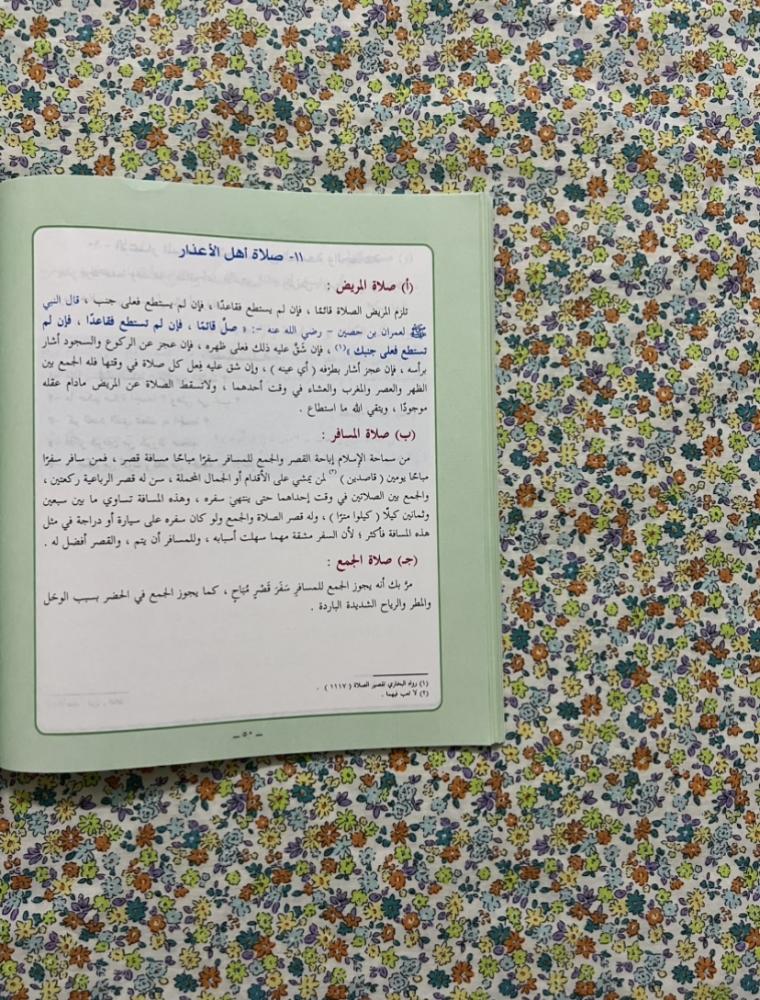 ١١- صلاة أهل الأعذار
(أ) صلاة المريض :
تلزم المريض الصلاة قائمًا ، فإن لم يستطع فقاعدًا ، فإن لم يستطع فعلى جنب ، قال النبي
ﷺ لعمران بن حصين – رضي الله عنه –: « صلّ قائمًا ، فإن لم تستطع فقاعدًا ، فإن لم
تستطع فعلى جنبك »(١) ، فإن شَقَّ عليه ذلك فعلى ظهره ، فإن عجز عن الركوع والسجود أشار
برأسه ، فإن عجز أشار بطرْفه ( أي عينه ) ، وإن شق عليه فِعل كل صلاة في وقتها فله الجمع بين
الظهر والعصر والمغرب والعشاء في وقت أحدهما ، ولاتسقط الصلاة عن المريض مادام عقله
موجودًا ، ويتقي الله ما استطاع .
(ب) صلاة المسافر :
من سماحة الإسلام إباحة القصر والجمع للمسافر سفرًا مباحًا مسافة قصر ، فمن سافر سفرًا
مباحًا يومين ( قاصدين )(٢) لمن يمشي على الأقدام أو الجمال المحملة ، سن له قصر الرباعية ركعتين ،
والجمع بين الصلاتين في وقت إحداهما حتى ينتهيَ سفره ، وهذه المسافة تساوي ما بين سبعين
وثمانين كيلًا ( كيلوا مترًا ) ، وله قصر الصلاة والجمع ولو كان سفره على سيارة أو دراجة في مثل
هذه المسافة فأكثر ؛ لأن السفر مشقة مهما سهلت أسبابه ، وللمسافر أن يتم ، والقصر أفضل له .
(جـ) صلاة الجمع :
مرَّ بك أنه يجوز الجمع للمسافرِ سَفَرَ قَصْرٍ مُبَاحٍ ، كما يجوز الجمع في الحضر بسبب الوحَل
والمطر والرياح الشديدة الباردة .
(١) رواه البخاري تقصير الصلاة ( ١١١٧ ) .
(٢) لا تعب فيهما .
– ٥٠ –